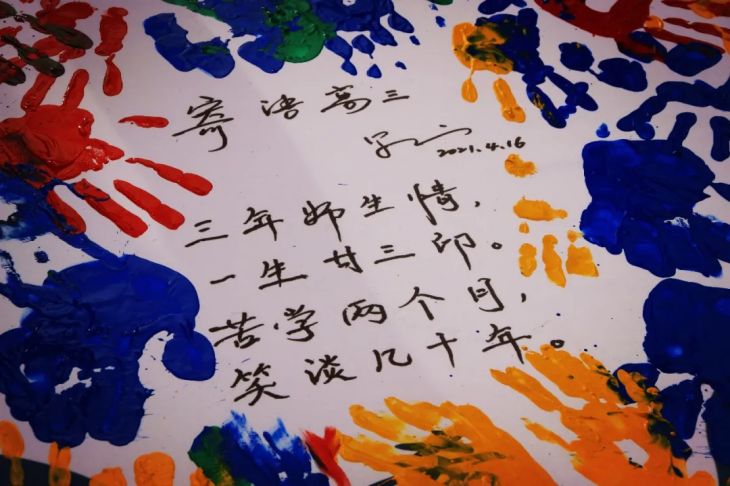 寄语高三
2021.4.16
三年师生情，
一生廿三印。
苦学两个月，
笑谈几十年。